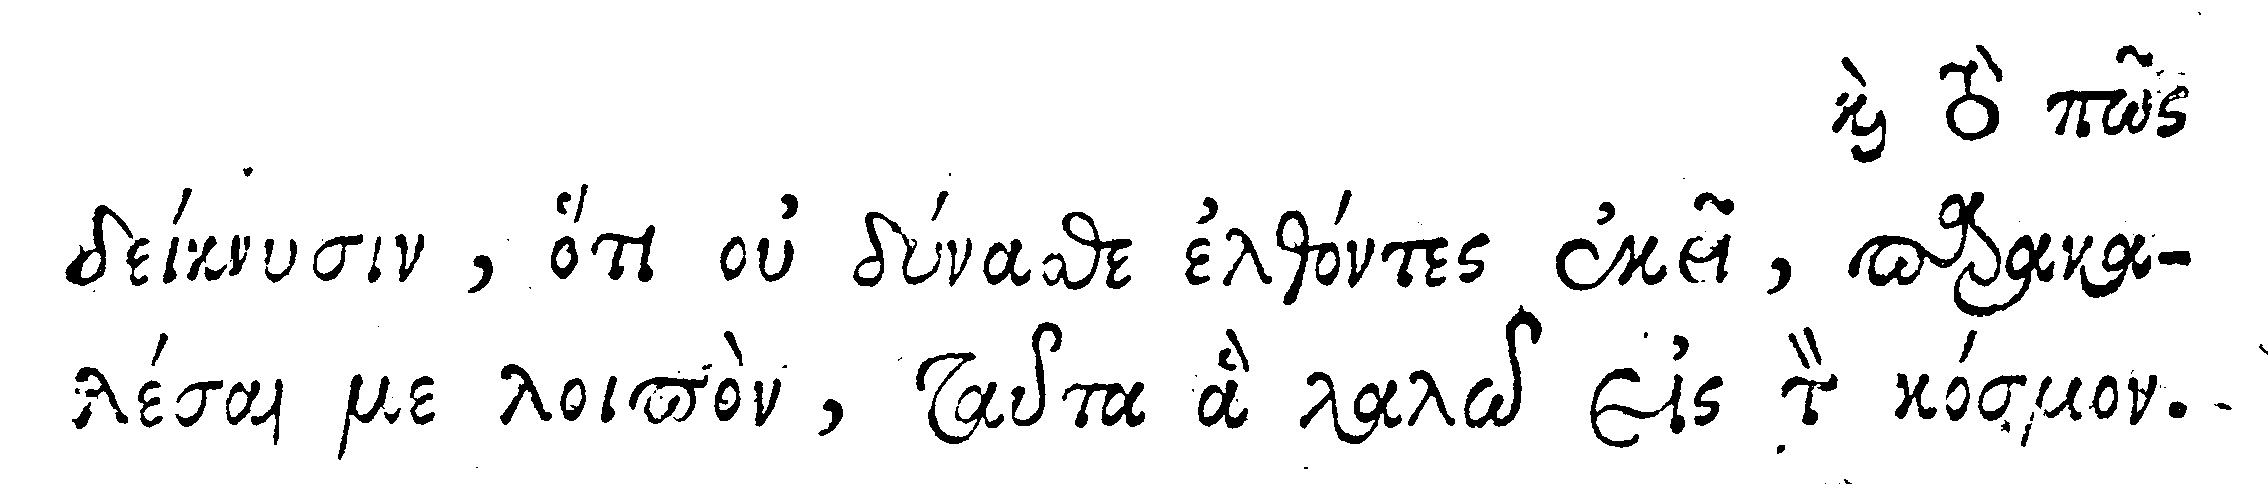 καὶ τὸ πῶς
δείκνυσιν, ὅτι οὐ δύνασθε ἐλθόντες ἐκεῖ, παρακα-
λέσαι με λοιπὸν, ταῦτα ἃ λαλῶ εἰς τὸν κόσμον.